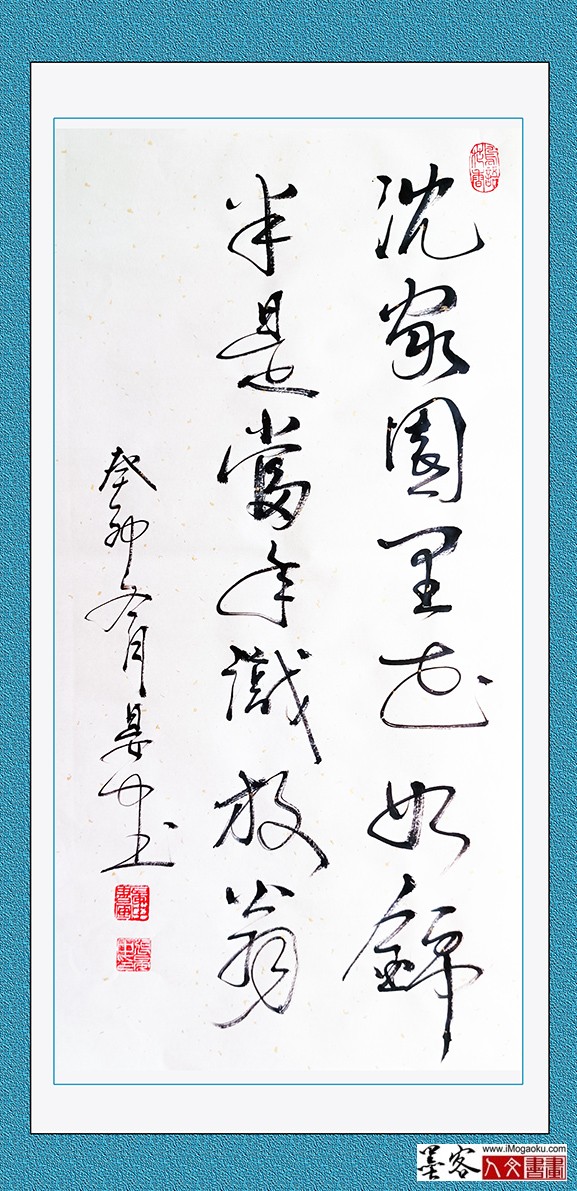 沈家園里花如錦
半是當年識放翁
癸卯冬月晏中書
墨客
www.iMogaoku.com
人文書畫